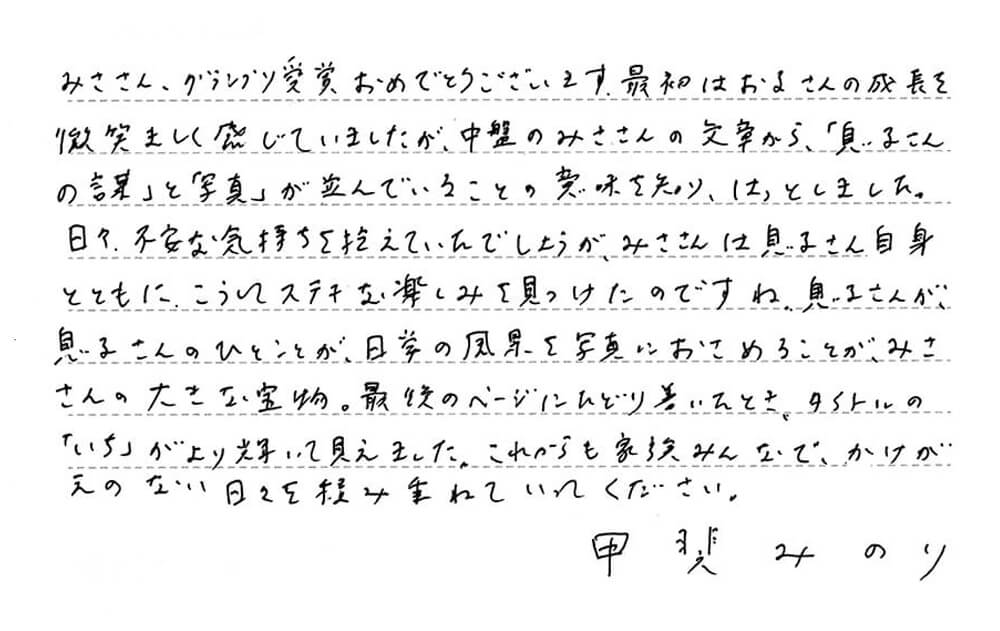 みささん、グランプリ受賞おめでとうございます。最初はお子さんの成長を
微笑ましく感じていましたが、中盤のみささんの文章から、「息子さん
の言葉」と「写真」が並んでいることの意味を知り、はっとしました。
日々、不安な気持ちを抱えていたでしょうが、みささんは息子さん自身
とともに、こうしてステキな楽しみを見つけたのですね。息子さんが、
息子さんのひとことが、日常の風景を写真におさめることが、みさ
さんの大きな宝物。最後のページにたどり着いたとき、タイトルの
「いち」がより輝いて見えました。これからも家族みんなで、かけが
えのない日々を積み重ねていってください。
甲斐みのり